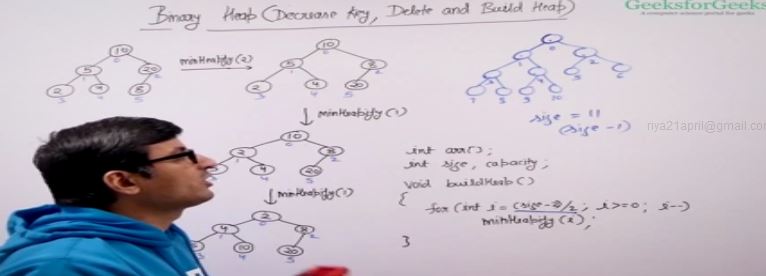 Binary Heap (Decrease Key, Delete and Build Heap)
GeeksforGeeks
A computer science portal for geeks
10
5 20
2 4 8
0
1 2
3 4 5
minHeapify(2)
10
5 8
2 4 20
0
1 2
3 4 5
minHeapify(1)
10
2 8
4 20
0
2
4 5
minHeapify(0)
2
4 8
10 20
0
1 2
4 5
0
1 2
5 6
7 8 9 10
size = 11
(size - 1)
nya21april@gmail.co
int arr[];
int size, capacity;
void buildHeap()
{
for (int i = (size-2)/2; i>=0; i--)
minHeapify(i);
}